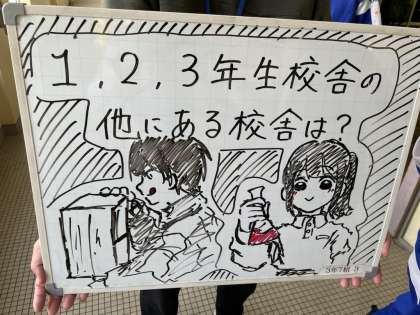 1,2,3年生校舎の
他にある校舎は?
3年7組